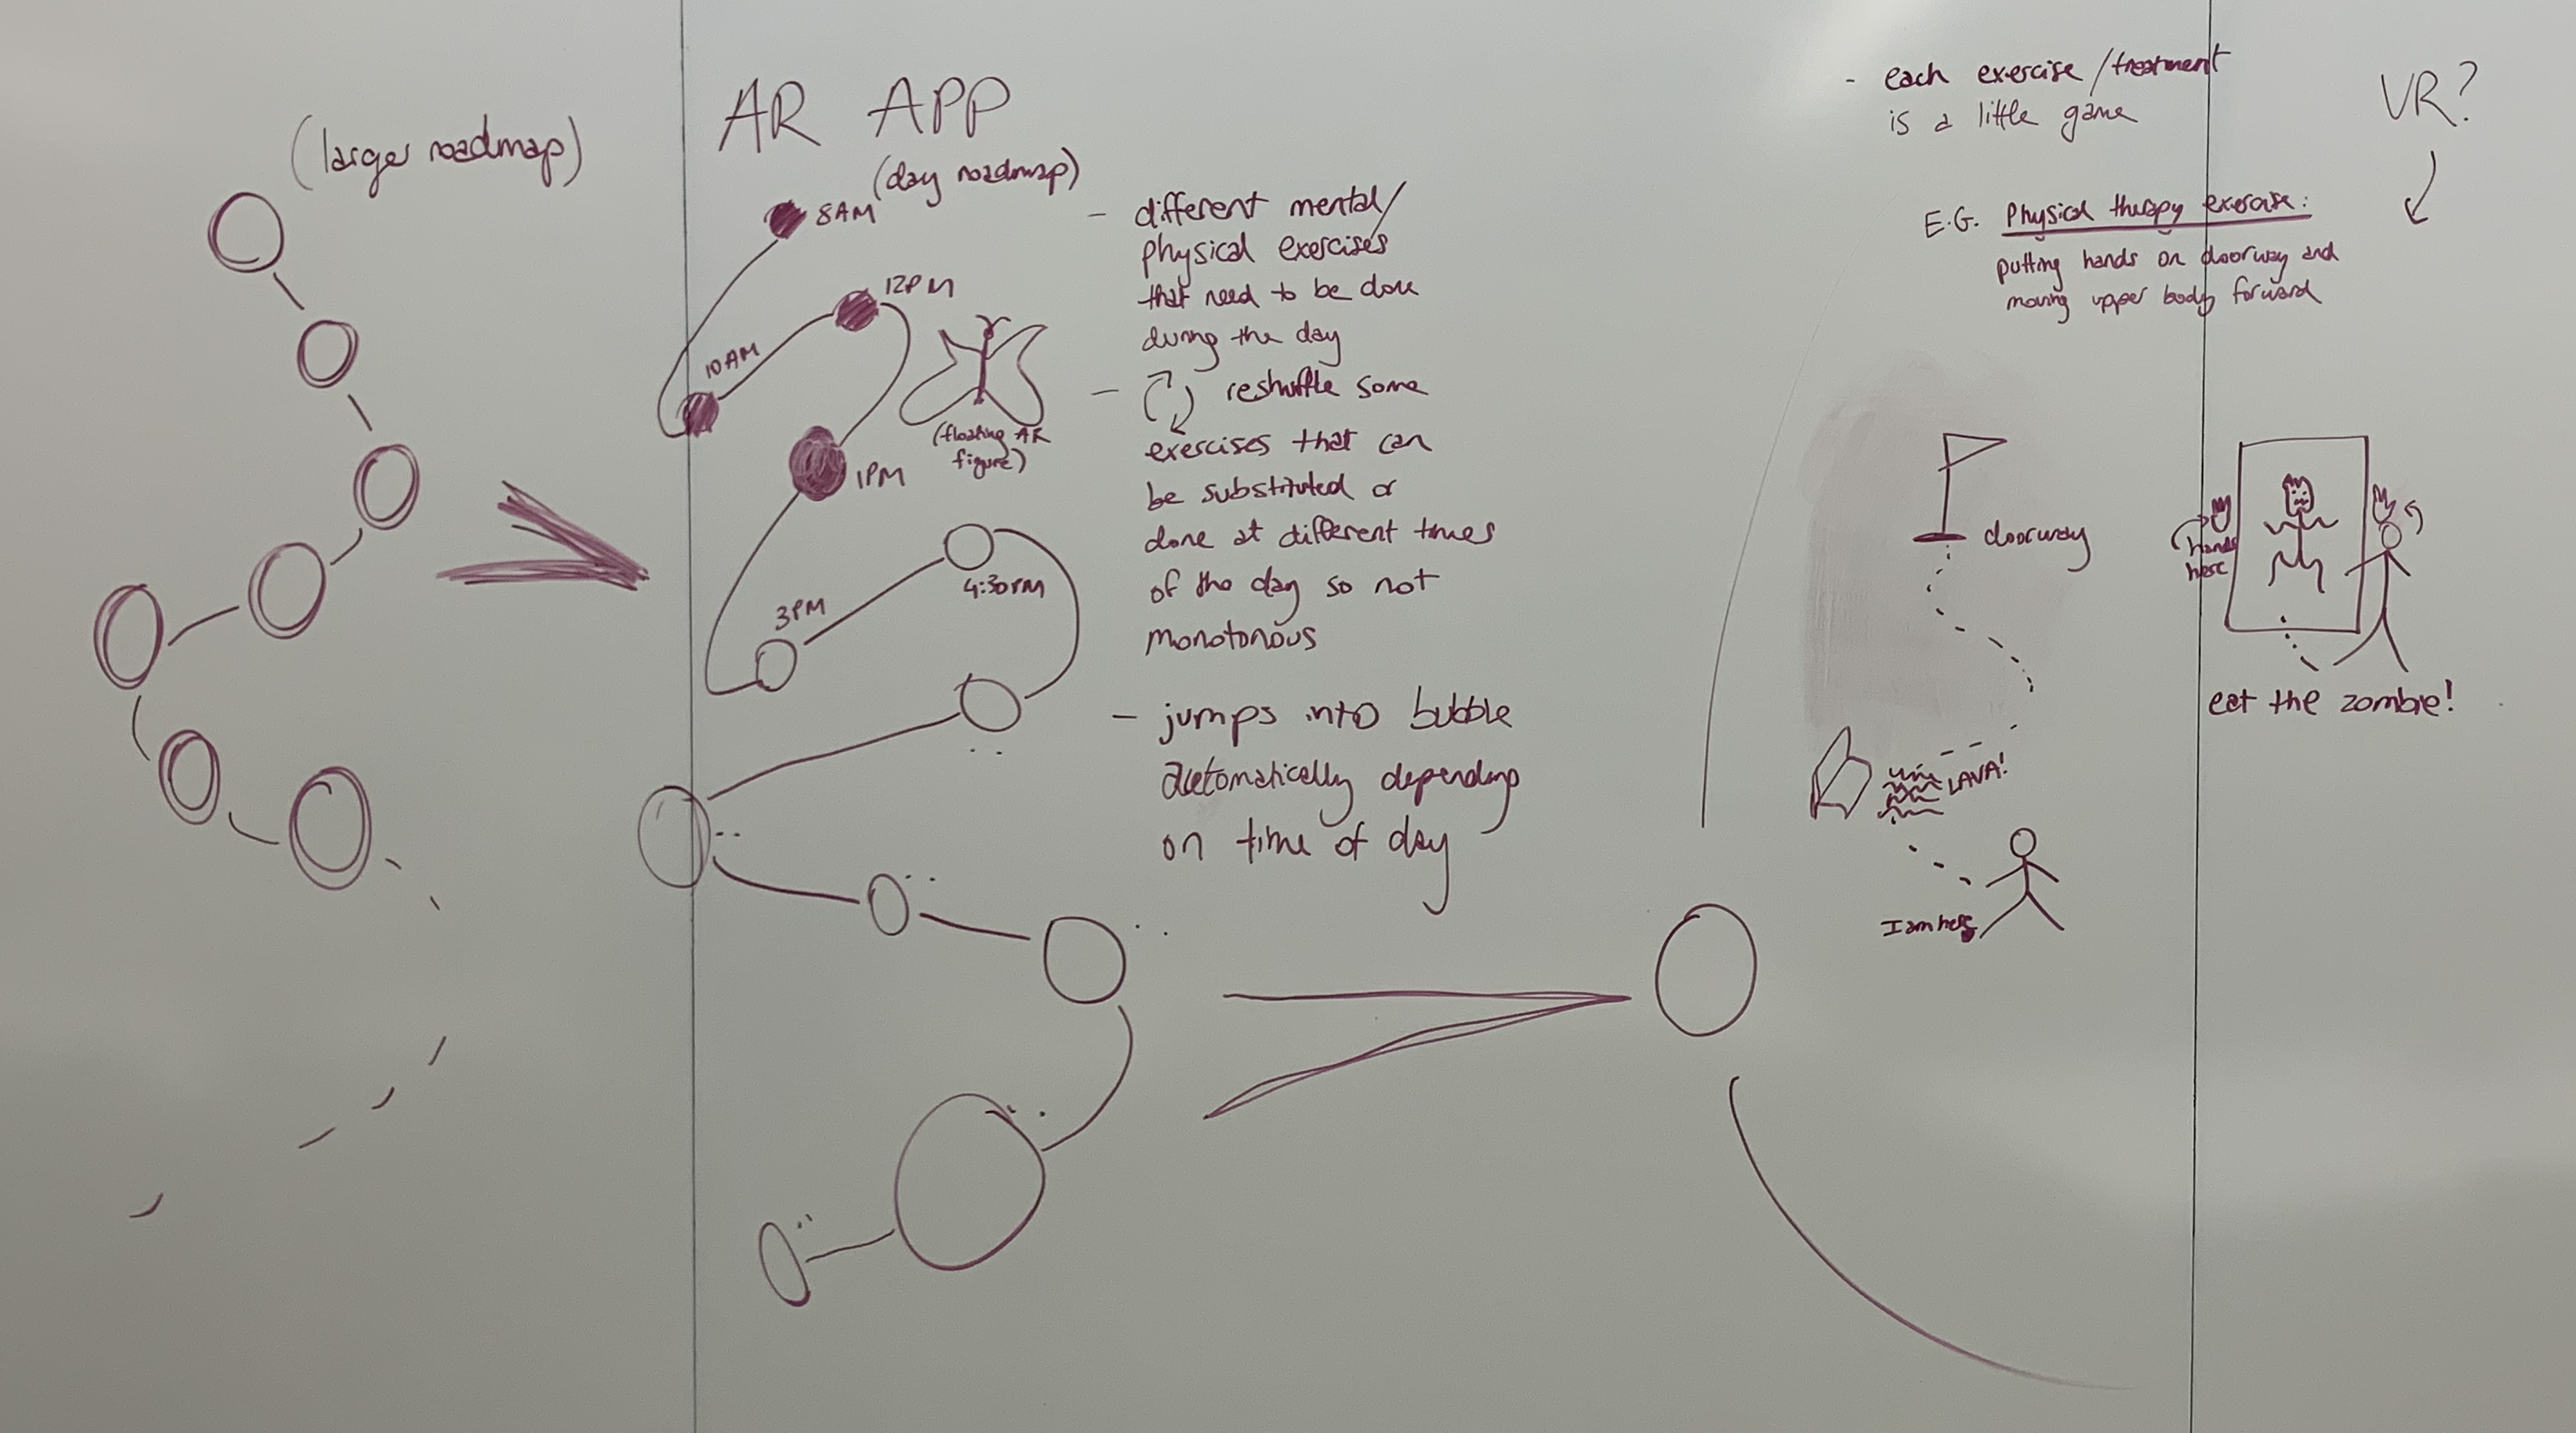 (larger roadmap)
AR APP
(day roadmap)
8AM
12PM
10AM
(floating AR
figure)
1PM
4:30PM
3PM
- different mental/
physical exercises
that need to be done
during the day
- reshuffle some
exercises that can
be substituted or
done at different times
of the day so not
monotonous
- jumps into bubble
automatically depending
on time of day
- each exercise/treatment
is a little game
VR?
E.G. Physical therapy exercise:
putting hands on doorway and
moving upper body forward
doorway
LAVA!
I am here
hands
here
eat the zombie!